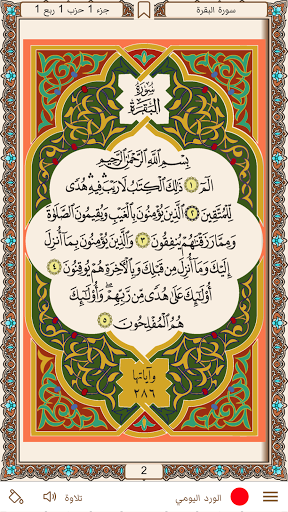 سورة البقرة
جزء 1 حزب 1 ربع 1
سُورَةُ
البَقَرَةِ
بِسْمِ اللَّهِ الرَّحْمَٰنِ الرَّحِيمِ
الٓمٓ ١ ذَٰلِكَ الْكِتَٰبُ لَا رَيْبَ ۛ فِيهِ ۛ هُدًى
لِّلْمُتَّقِينَ ٢ الَّذِينَ يُؤْمِنُونَ بِالْغَيْبِ وَيُقِيمُونَ الصَّلَوٰةَ
وَمِمَّا رَزَقْنَٰهُمْ يُنفِقُونَ ٣ وَالَّذِينَ يُؤْمِنُونَ بِمَآ أُنزِلَ
إِلَيْكَ وَمَآ أُنزِلَ مِن قَبْلِكَ وَبِالْءَاخِرَةِ هُمْ يُوقِنُونَ ٤
أُو۟لَٰٓئِكَ عَلَىٰ هُدًى مِّن رَّبِّهِمْ ۖ وَأُو۟لَٰٓئِكَ
هُمُ الْمُفْلِحُونَ ٥
وآياتها
٢٨٦
2
الورد اليومي
تلاوة